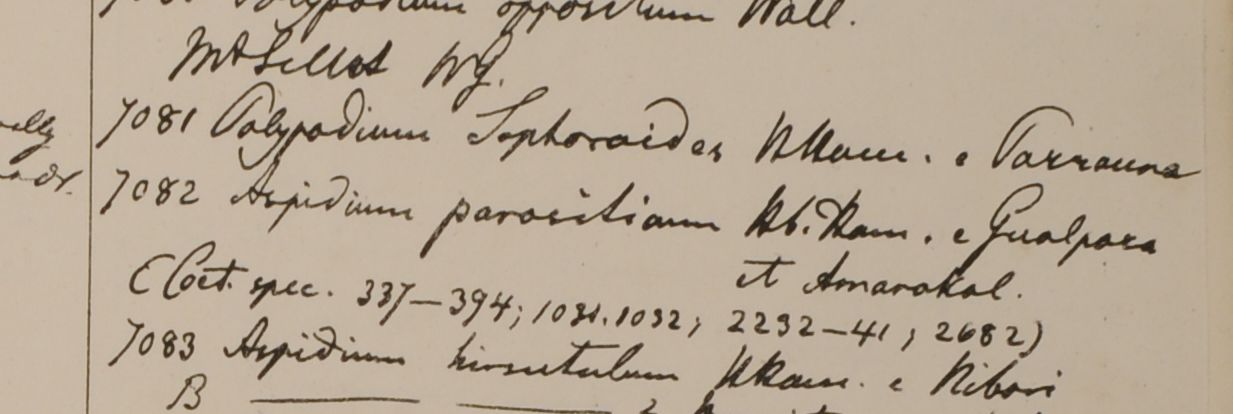 Polypodium oppositum Wall.
Mt Sillet WG.
7081 Polypodium Sophoroides HHam. e Parraura
7082 Aspidium parasiticum Hb. Ham. e Gualpara
et Amarakal.
(Coet. spec. 337—394; 1031.1032; 2232—41; 2682)
7083 Aspidium hirsutulum HHam. e Nibari
B